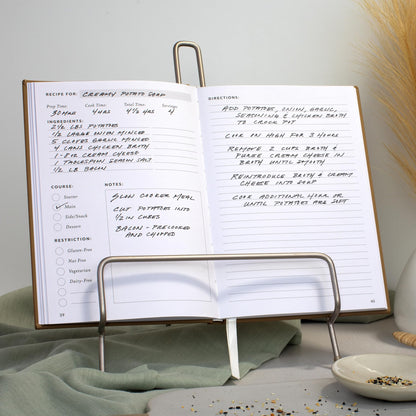 RECIPE FOR: CREAMY POTATO SOUP
Prep Time: Cook Time: Total Time: Servings:
30 MINS 4 HRS 4 1/2 HRS 4
INGREDIENTS:
2 1/2 LBS POTATOES
1/2 LARGE ONION MINCED
5 CLOVES GARLIC MINCED
4 CANS CHICKEN BROTH
1-8 OZ CREAM CHEESE
1 TABLESPOON SEASON SALT
1/2 LB BACON
COURSE:
Starter
Main
Side/Snack
Dessert
RESTRICTION:
Gluten-Free
Nut-Free
Vegetarian
Dairy-Free
NOTES:
SLOW COOKER MEAL
CUT POTATOES INTO
1/2 IN CUBES
BACON - PRECOOKED
AND CHOPPED
39
DIRECTIONS:
ADD POTATOES, ONION, GARLIC,
SEASONING & CHICKEN BROTH
TO CROCK POT
COOK ON HIGH FOR 3 HOURS
REMOVE 2 CUPS BROTH &
PUREE CREAM CHEESE IN
BROTH UNTIL SMOOTH
REINTRODUCE BROTH & CREAMY
CHEESE INTO SOUP
COOK ADDITIONAL HOUR OR
UNTIL POTATOES ARE SOFT